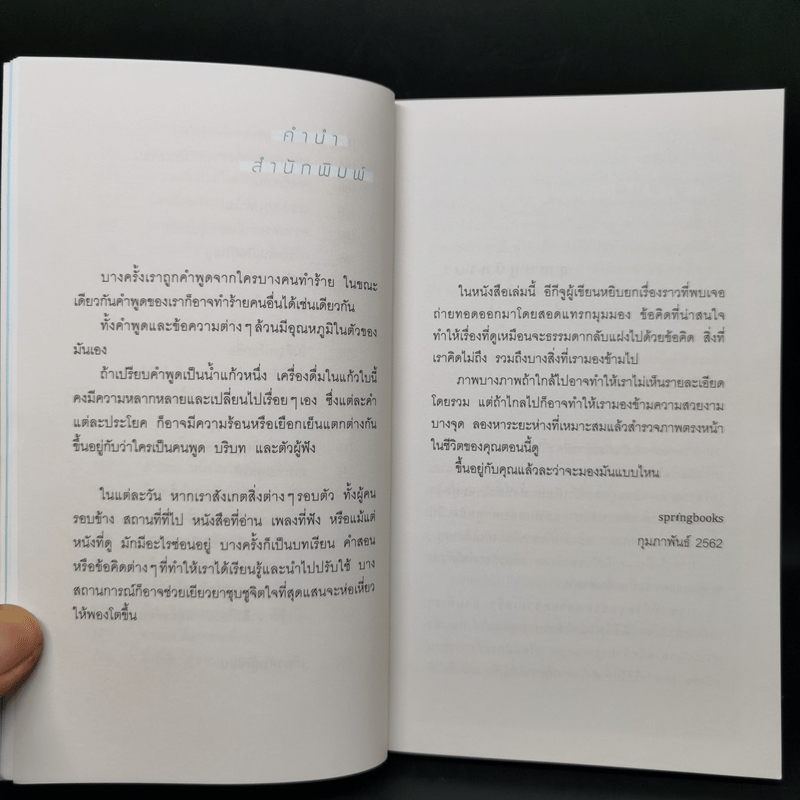 คำนำ
สำนักพิมพ์
บางครั้งเราถูกคำพูดจากใครบางคนทำร้าย ในขณะ
เดียวกันคำพูดของเราก็อาจทำร้ายคนอื่นได้เช่นเดียวกัน
ทั้งคำพูดและข้อความต่างๆ ล้วนมีอุณหภูมิในตัวของ
มันเอง
ถ้าเปรียบคำพูดเป็นน้ำแก้วหนึ่ง เครื่องดื่มในแก้วใบนี้
คงมีความหลากหลายและเปลี่ยนไปเรื่อยๆ เอง ซึ่งแต่ละคำ
แต่ละประโยค ก็อาจมีความร้อนหรือเยือกเย็นแตกต่างกัน
ขึ้นอยู่กับว่าใครเป็นคนพูด บริบท และตัวผู้ฟัง
ในแต่ละวัน หากเราสังเกตสิ่งต่างๆ รอบตัว ทั้งผู้คน
รอบข้าง สถานที่ที่ไป หนังสือที่อ่าน เพลงที่ฟัง หรือแม้แต่
หนังที่ดู มักมีอะไรซ่อนอยู่ บางครั้งก็เป็นบทเรียน คำสอน
หรือข้อคิดต่างๆ ที่ทำให้เราได้เรียนรู้และนำไปปรับใช้ บาง
สถานการณ์ก็อาจช่วยเยียวยาชุบชูจิตใจที่สุดแสนจะห่อเหี่ยว
ให้พองโตขึ้น
ในหนังสือเล่มนี้ อีกีจูผู้เขียนหยิบยกเรื่องราวที่พบเจอ
ถ่ายทอดออกมาโดยสอดแทรกมุมมอง ข้อคิดที่น่าสนใจ
ทำให้เรื่องที่ดูเหมือนจะธรรมดากลับแฝงไปด้วยข้อคิด สิ่งที่
เราคิดไม่ถึง รวมถึงบางสิ่งที่เรามองข้ามไป
ภาพบางภาพถ้าใกล้ไปอาจทำให้เราไม่เห็นรายละเอียด
โดยรวม แต่ถ้าไกลไปก็อาจทำให้เรามองข้ามความสวยงาม
บางจุด ลองหาระยะห่างที่เหมาะสมแล้วสำรวจภาพตรงหน้า
ในชีวิตของคุณตอนนี้ดู
ขึ้นอยู่กับคุณแล้วละว่าจะมองมันแบบไหน
springbooks
กุมภาพันธ์ 2562